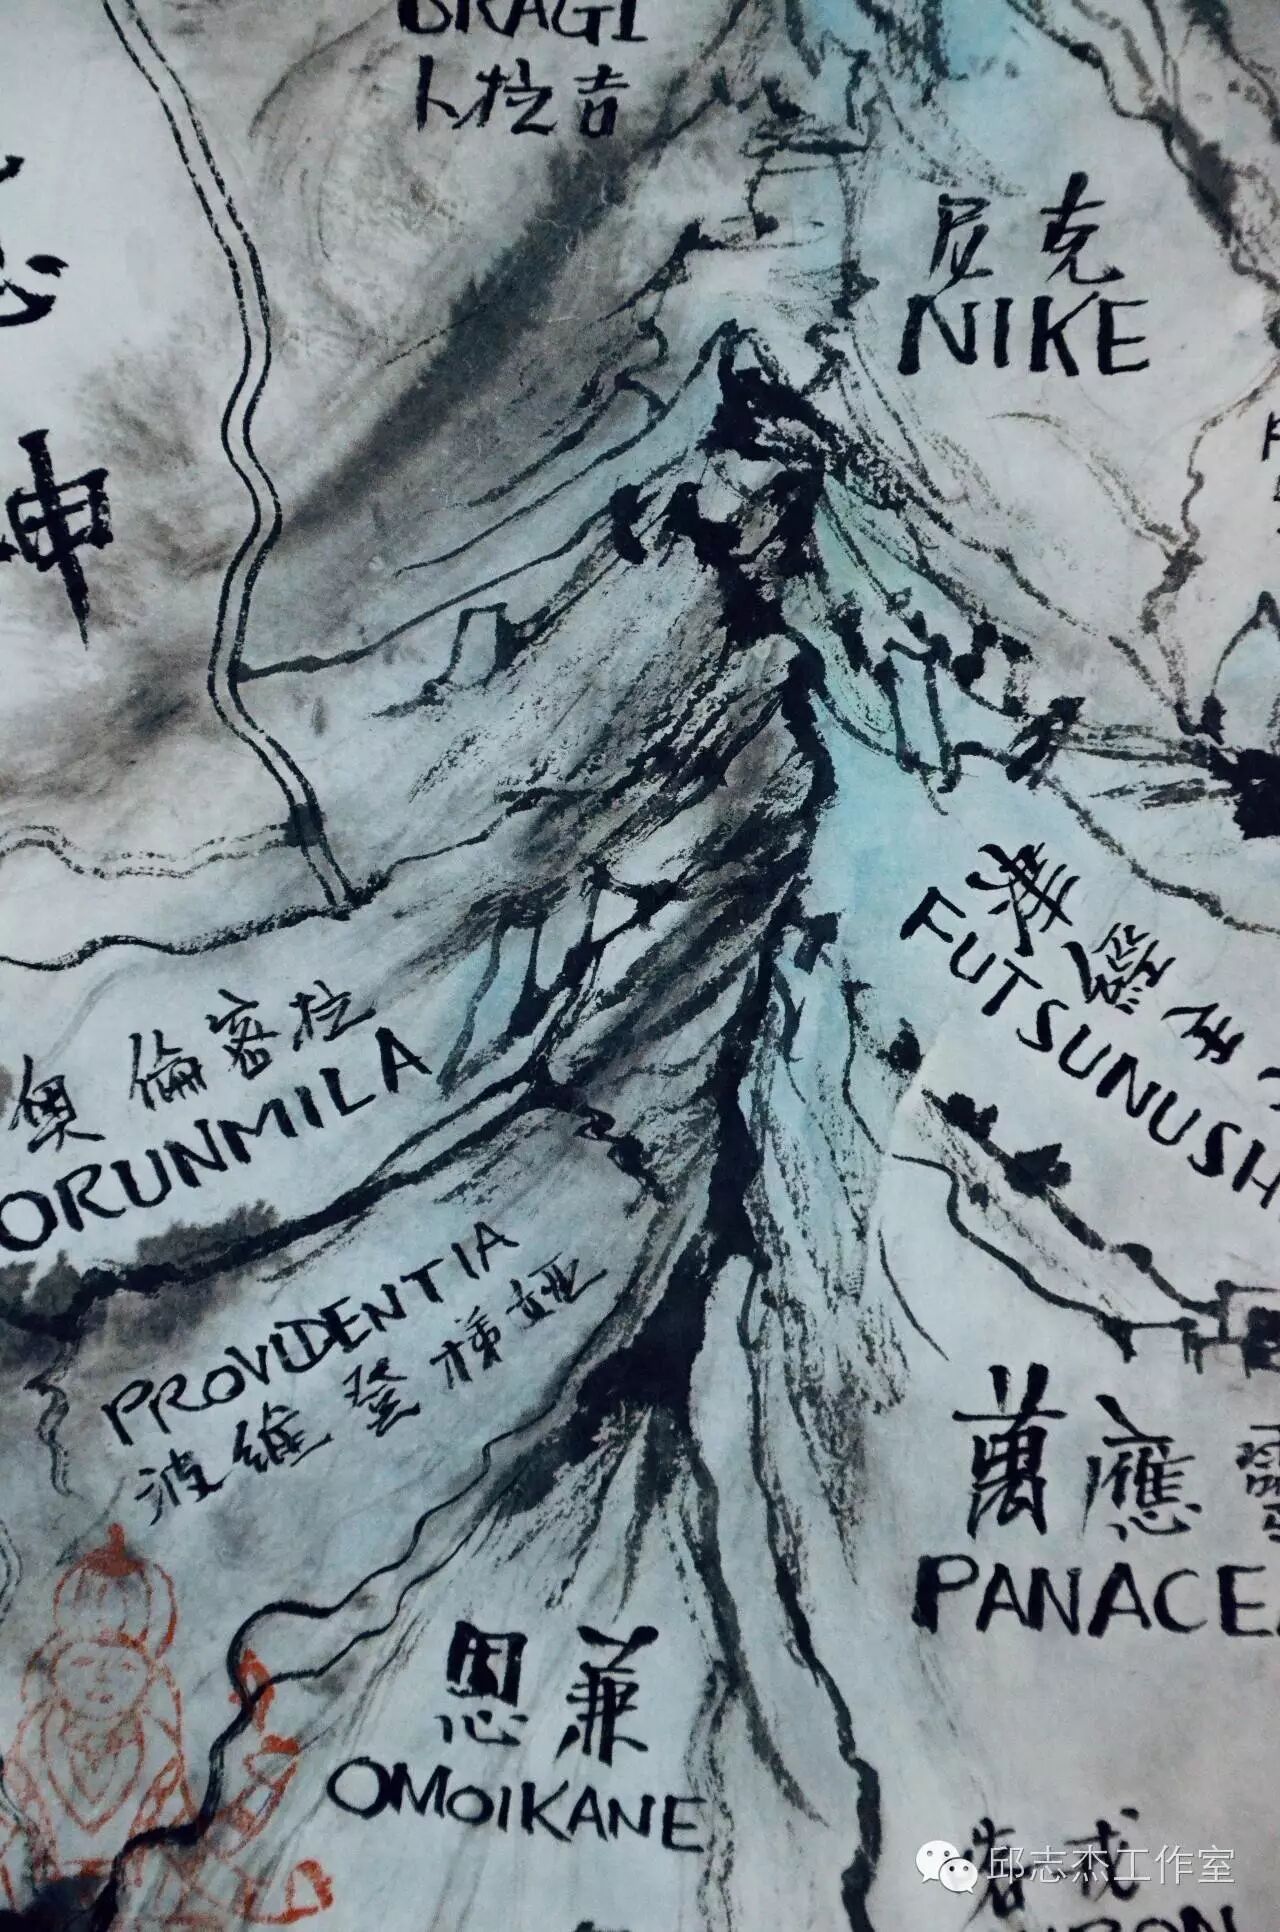 BRAGI
卜拉吉
尼克
NIKE
神
FUTSUNUSH
奥倫密拉
ORUNMILA
PROVIDENTIA
波維登梯婭
萬應靈
PANACEA
思兼
OMOIKANE
邱志杰工作室